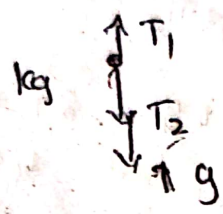 T₁
kg
T₂
g